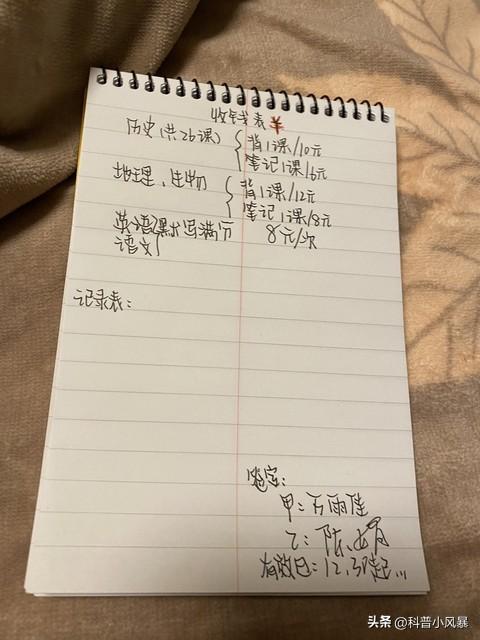 收钱表¥
历史(共26课) { 背1课/10元
笔记1课/6元
地理、生物 { 背1课/12元
笔记1课/8元
英语 } 默写满分 8元/次
语文
记录表：
鉴定：
甲：万雨佳
乙：陈
有效日：12.3起...
头条 @科普小风暴